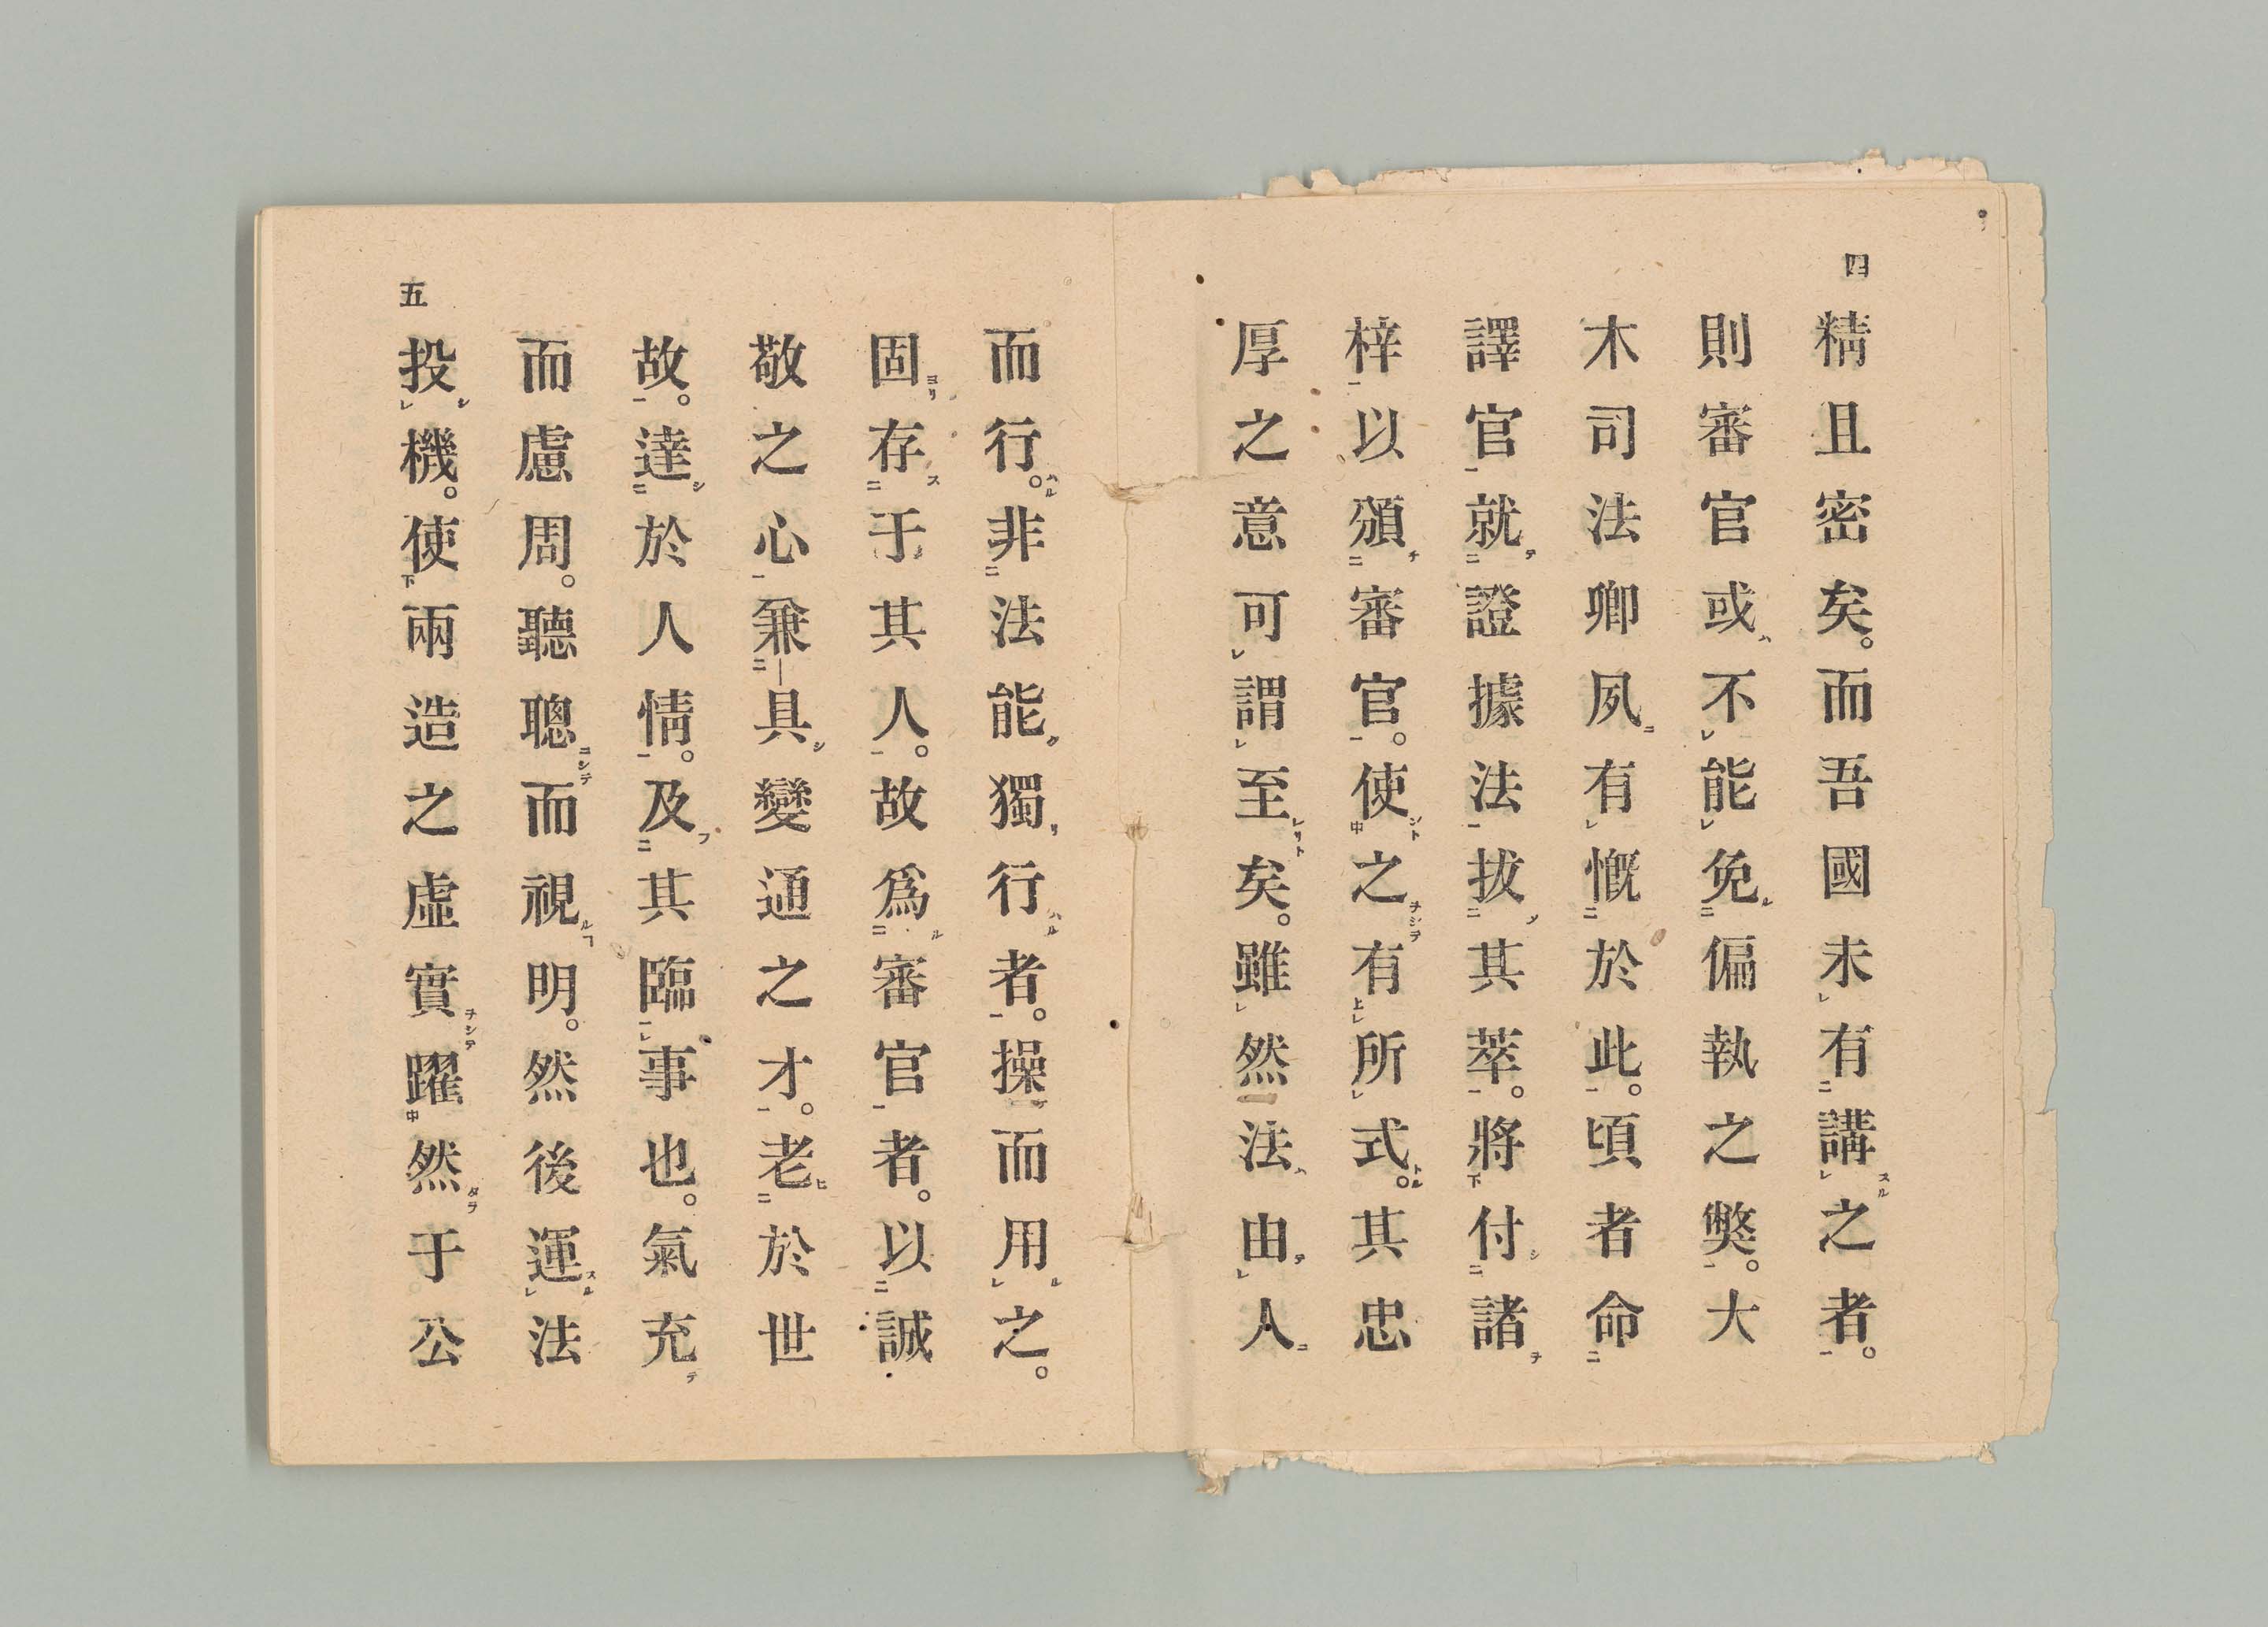 四
精且密矣。而吾國未有講之者。
則審官或不能免偏執之弊。大
木司法卿夙有慨於此。頃者命
譯官就證據法拔其萃。將付諸
梓以頒審官。使之有所式。其忠
厚之意可謂至矣。雖然法由人
而行。非法能獨行者。操而用之。
固存于其人。故爲審官者。以誠
敬之心兼具變通之才。老於世
故。達於人情。及其臨事也。氣充
而慮周。聽聰而視明。然後運法
投機。使兩造之虛實躍然于公
五